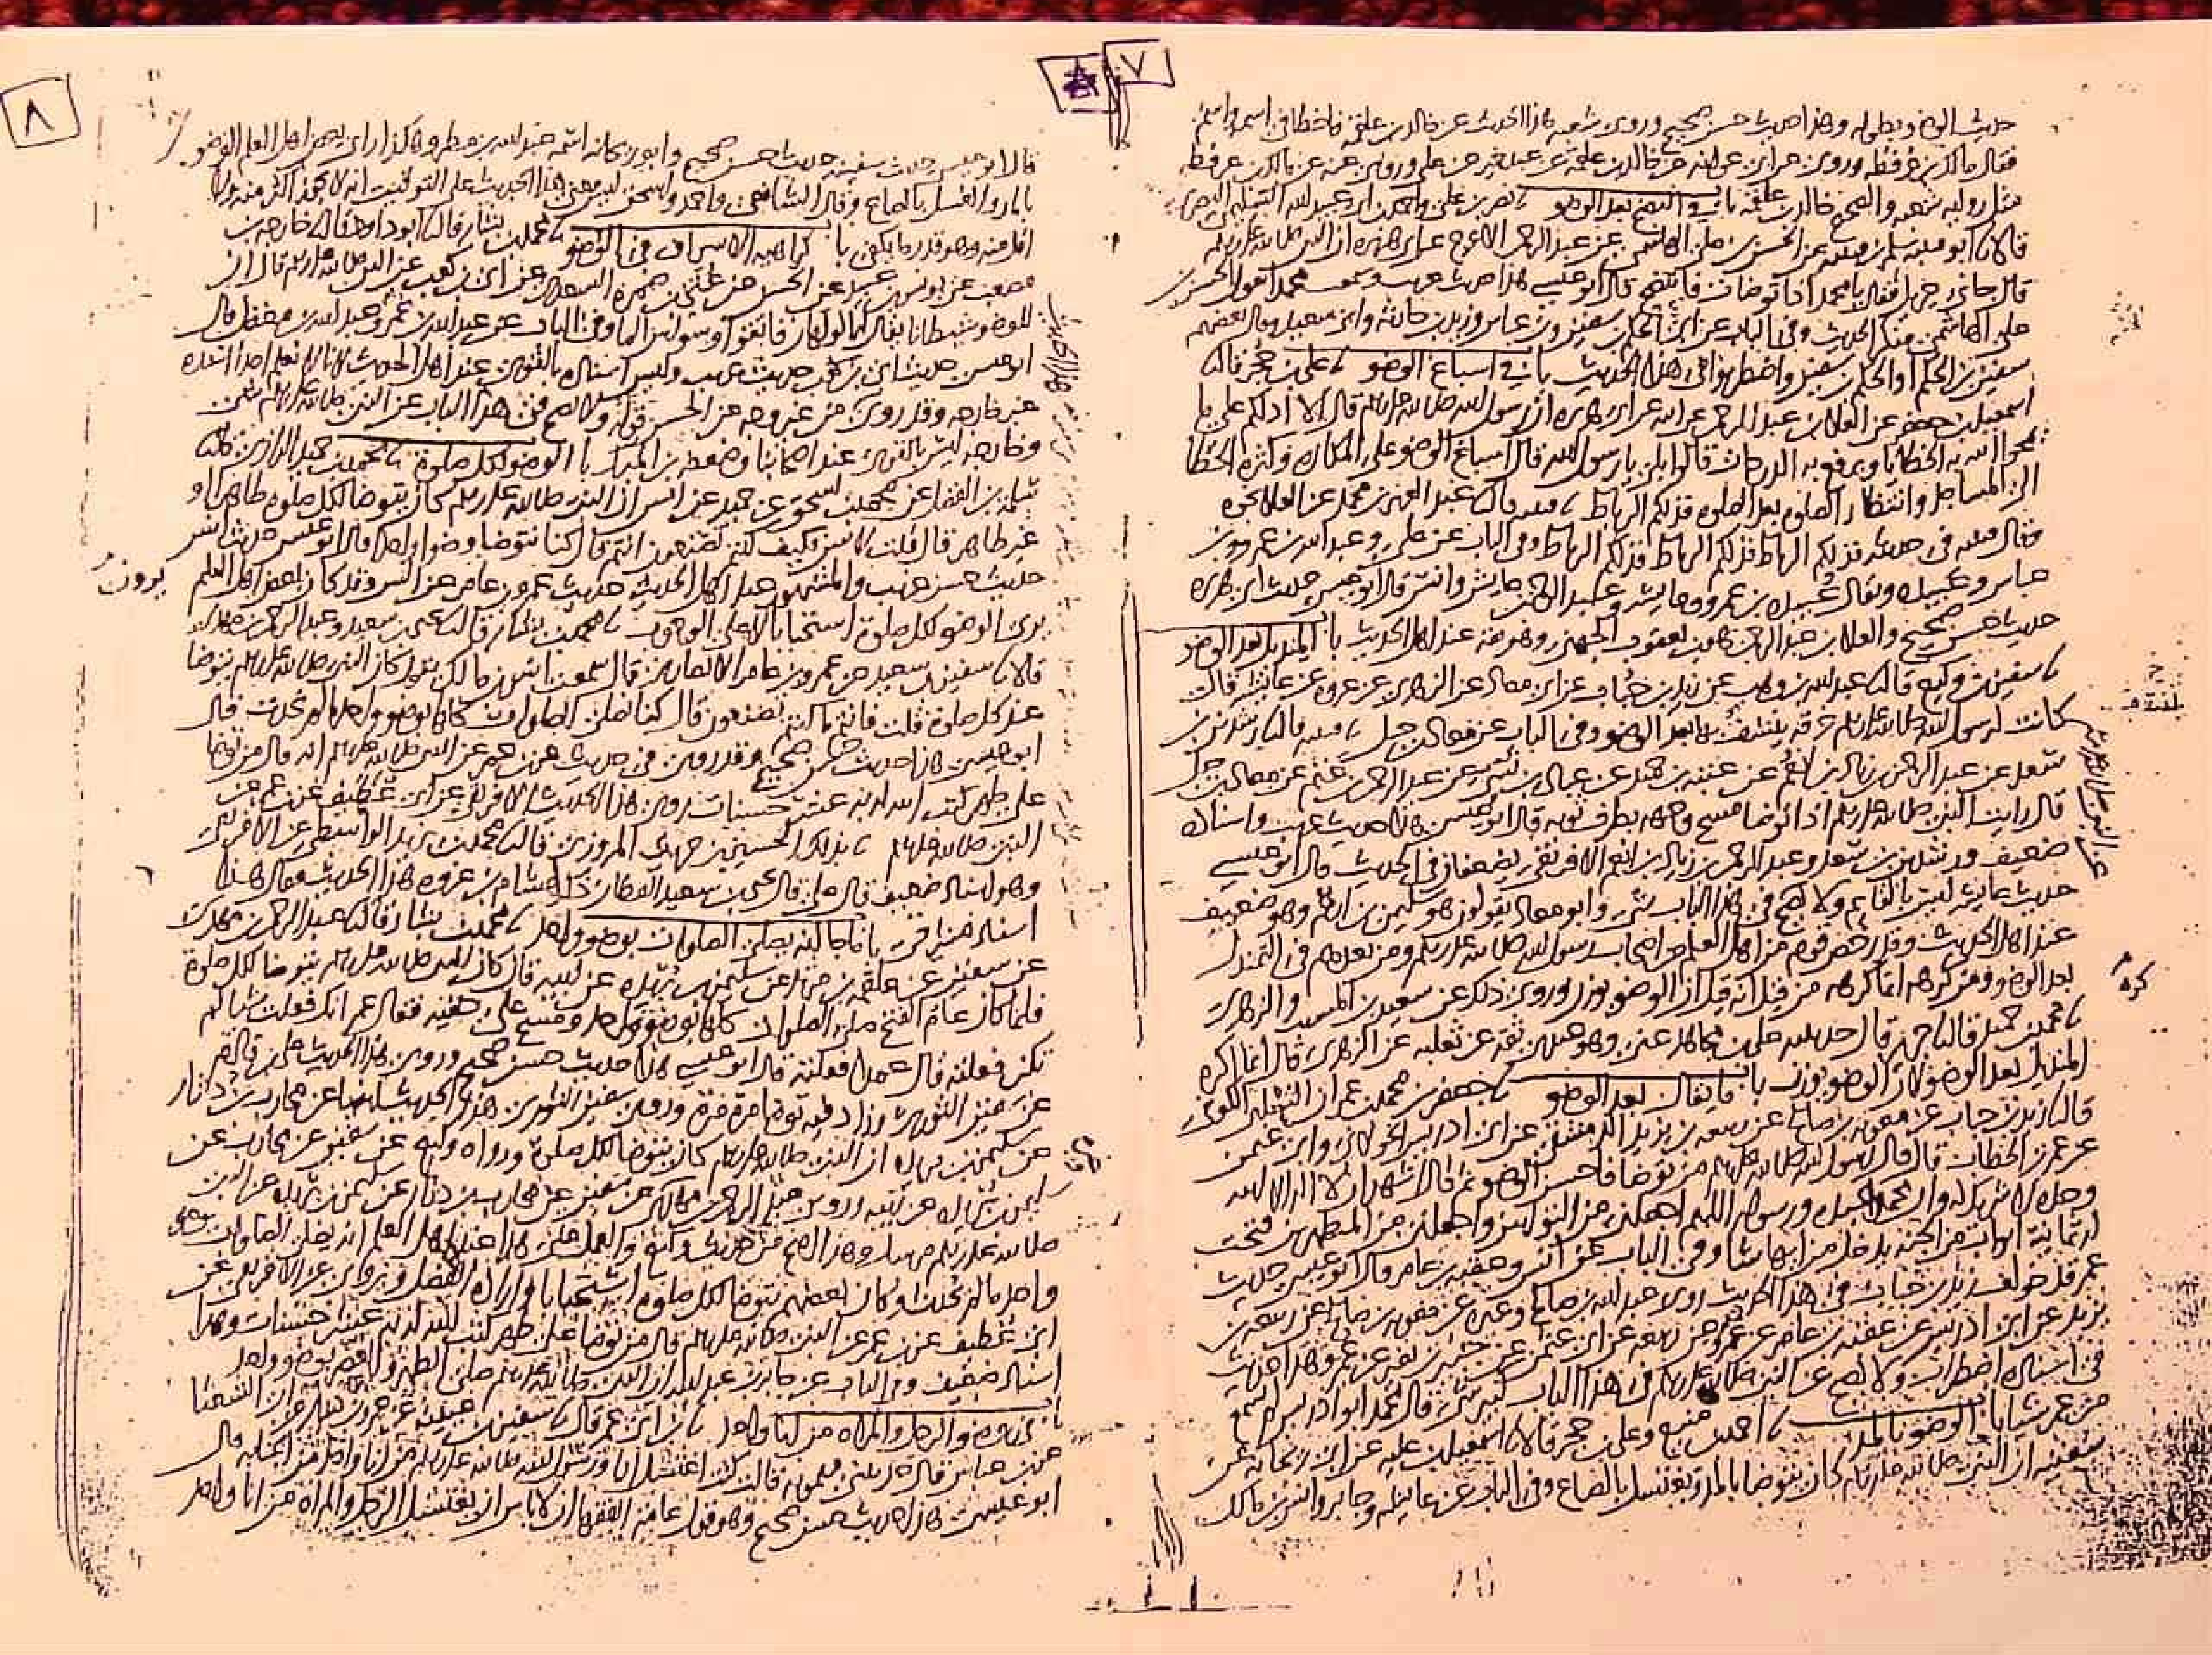 ٧
حديث الوضو بطوله وهذا حديث حسن صحيح وروى شعبه هذا الحديث عن خالد بن علقمة فاخطا في اسمه واسم
فقال مالك بن عرفطه وروى عن ابي عوانه عن خالد بن علقمة عن عبد خير عن علي وروى عنه عن مالك بن عرفطه
مثل روايه شعبه والصحيح خالد بن علقمه باب في النضح بعد الوضو نصر بن علي واحمد بن ابي عبيد الله السليمي البصري
قالا ابو قتيبه سلم بن قتيبه عن الحسن بن علي الهاشمي عن عبد الرحمن الاعرج عن ابي هريره ان النبي صلى الله عليه وسلم
قال جاني جبريل فقال يا محمد اذا توضات فانتضح قال ابو عيسى هذا حديث غريب وسمعت محمدا يقول الحسن بن
علي الهاشمي منكر الحديث وفي الباب عن ابي الحكم بن سفين وابن عباس وزيد بن حارثة وابي سعيد وقال بعضهم
سفين بن الحكم او الحكم بن سفين واضطربوا في هذا الحديث باب في اسباغ الوضو علي بن حجر قال
اسمعيل بن جعفر عن العلا بن عبد الرحمن عن ابيه عن ابي هريره ان رسول الله صلى الله عليه وسلم قال الا ادلكم على ما
يمحوا الله به الخطايا ويرفع به الدرجات قالوا بلى يا رسول الله قال اسباغ الوضو على المكاره وكثره الخطا
الى المساجد وانتظار الصلوه بعد الصلوه فذلكم الرباط قتيبه قال عبد العزيز بن محمد عن العلا نحوه
وقال قتيبه في حديثه فذلكم الرباط فذلكم الرباط فذلكم الرباط وفي الباب عن علي وعبد الله بن عمرو وابن
عباس وعبيده ويقال عبيده بن عمرو وعايشه وعبد الرحمن بن عايش وانس قال ابو عيسى حديث ابي هريره
حديث حسن صحيح والعلا بن عبد الرحمن هو بن يعقوب الجهني وهو ثقه عند اهل الحديث باب المنديل بعد الوضو
سفين بن وكيع قال عبد الله بن وهب عن زيد بن حباب عن ابي معاذ عن الزهري عن عروه عن عايشه قالت
كانت لرسول الله صلى الله عليه وسلم خرقه ينشف بها بعد الوضو وفي الباب عن معاذ بن جبل قتيبه قال رشدين بن
سعد عن عبد الرحمن بن زياد بن انعم عن عتبه بن حميد عن عباده بن نسي عن عبد الرحمن بن غنم عن معاذ بن جبل
قال رايت النبي صلى الله عليه وسلم اذا توضا مسح وجهه بطرف ثوبه قال ابو عيسى هذا حديث غريب واسناده
ضعيف ورشدين بن سعد وعبد الرحمن بن زياد بن انعم الافريقي يضعفان في الحديث قال ابو عيسى
حديث عايشه ليس بالقايم ولا يصح في هذا الباب شي وابو معاذ يقولون هو سليمن بن ارقم وهو ضعيف
عند اهل الحديث وقد رخص قوم من اهل العلم من اصحاب رسول الله صلى الله عليه وسلم ومن بعدهم في التمندل
بعد الوضو ومن كرهه انما كرهه من قبل انه قيل ان الوضو يوزن وروي ذلك عن سعيد بن المسيب والزهري
محمد بن حميد قال جرير قال حدثنيه علي بن مجاهد عني وهو عندي ثقه عن ثعلبه عن الزهري قال انما كره
المنديل بعد الوضو لان الوضو يوزن باب ما يقال بعد الوضو جعفر بن محمد بن عمران الثعلبي الكوفي
قال زيد بن حباب عن معويه بن صالح عن ربيعه بن يزيد الدمشقي عن ابي ادريس الخولاني وابي عثمن
عن عمر بن الخطاب قال قال رسول الله صلى الله عليه وسلم من توضا فاحسن الوضو ثم قال اشهد ان لا اله الا الله
وحده لا شريك له وان محمدا عبده ورسوله اللهم اجعلني من التوابين واجعلني من المتطهرين فتحت
له ثمانية ابواب من الجنه يدخل من ايها شا وفي الباب عن انس وعقبه بن عامر قال ابو عيسى حديث
عمر قد خولف زيد بن حباب في هذا الحديث روى عبد الله بن صالح وغيره عن معويه بن صالح عن ربيعه بن
يزيد عن ابي ادريس عن عقبه بن عامر عن عمر وعن ربيعه عن ابي عثمن عن جبير بن نفير عن عمر وهذا حديث
في اسناده اضطراب ولا يصح عن النبي صلى الله عليه وسلم في هذا الباب كبير شي قال محمد ابو ادريس لم يسمع
من عمر شيا باب الوضو بالمد احمد بن منيع وعلي بن حجر قالا اسمعيل بن عليه عن ابي ريحانه عن
سفينه ان النبي صلى الله عليه وسلم كان يتوضا بالمد ويغتسل بالصاع وفي الباب عن عايشه وجابر وانس بن مالك
كره
٨
قال ابو عيسى حديث سفينه حديث حسن صحيح وابو ريحانه اسمه عبد الله بن مطر وهكذا راى بعض اهل العلم الوضو
بالمد والغسل بالصاع وقال الشافعي واحمد واسحق ليس معنى هذا الحديث على التوقيت انه لا يجوز اكثر منه ولا
اقل منه وهو قدر ما يكفي باب كراهيه الاسراف في الوضو محمد بن بشار قال ابو داود قال خارجه بن
مصعب عن يونس بن عبيد عن الحسن عن عتي بن ضمره السعدي عن ابي بن كعب عن النبي صلى الله عليه وسلم قال ان
للوضو شيطانا يقال له الولهان فاتقوا وسواس الما وفي الباب عن عبد الله بن عمرو وعبد الله بن مغفل قال
ابو عيسى حديث ابي بن كعب حديث غريب وليس اسناده بالقوي عند اهل الحديث لانا لا نعلم احدا اسنده
غير خارجه وقد روي من غير وجه عن الحسن قوله ولا يصح في هذا الباب عن النبي صلى الله عليه وسلم شي
وخارجه ليس بالقوي عند اصحابنا وضعفه بن المبارك باب الوضو لكل صلوة محمد بن حميد الرازي قال
سلمه بن الفضل عن محمد بن اسحق عن حميد عن انس ان النبي صلى الله عليه وسلم كان يتوضا لكل صلوه طاهرا او
غير طاهر قال قلت لانس فكيف كنتم تصنعون انتم قال كنا نتوضا وضوا واحدا قال ابو عيسى حديث انس
حديث حسن غريب والمشهور عند اهل الحديث حديث عمرو بن عامر عن انس وقد كان بعض اهل العلم
يرى الوضو لكل صلوة استحبابا لا على الوجوب محمد بن بشار قال يحيى بن سعيد وعبد الرحمن بن مهدي
قالا سفين بن سعيد عن عمرو بن عامر الانصاري قال سمعت انس بن مالك يقول كان النبي صلى الله عليه وسلم يتوضا
عند كل صلوة قلت فانتم ما كنتم تصنعون قال كنا نصلي الصلوات كلها بوضو واحد ما لم نحدث قال
ابو عيسى هذا حديث حسن صحيح وقد روي في حديث عن بن عمر عن النبي صلى الله عليه وسلم انه قال من توضا
على طهر كتب الله له به عشر حسنات روى هذا الحديث الافريقي عن ابي غطيف عن بن عمر عن
النبي صلى الله عليه وسلم بذلك الحسين بن حريث المروزي قال محمد بن يزيد الواسطي عن الافريقي
وهو اسناد ضعيف قال علي قال يحيى بن سعيد القطان ذكر لهشام بن عروه هذا الحديث فقال هذا
اسناد مشرقي باب ما جا انه يصلي الصلوات بوضو واحد محمد بن بشار قال عبد الرحمن بن مهدي
عن سفين عن علقمه بن مرثد عن سليمن بن بريده عن ابيه قال كان النبي صلى الله عليه وسلم يتوضا لكل صلوة
فلما كان عام الفتح صلى الصلوات كلها بوضو واحد ومسح على خفيه فقال عمر انك فعلت شيا لم
تكن فعلته قال عمدا فعلته قال ابو عيسى هذا حديث حسن صحيح وروى هذا الحديث علي بن قادم
عن سفين الثوري وزاد فيه توضا مرة مرة وروى سفين الثوري هذا الحديث ايضا عن محارب بن دثار
عن سليمن بن بريده ان النبي صلى الله عليه وسلم كان يتوضا لكل صلوة ورواه وكيع عن سفين عن محارب عن
سليمن بن بريده عن ابيه وروى عبد الرحمن بن مهدي عن سفين عن محارب بن دثار عن سليمن بن بريده عن النبي
صلى الله عليه وسلم مرسلا وهذا اصح من حديث وكيع والعمل على هذا عند اهل العلم انه يصلي الصلوات بوضو
واحد ما لم يحدث وكان بعضهم يتوضا لكل صلوة استحبابا واراده الفضل ويروى عن الافريقي عن
ابي غطيف عن بن عمر عن النبي صلى الله عليه وسلم قال من توضا على طهر كتب الله له به عشر حسنات وهذا
اسناد ضعيف وفي الباب عن جابر بن عبد الله ان النبي صلى الله عليه وسلم صلى الظهر والعصر بوضو واحد
باب في وضو الرجل والمراه من انا واحد ابن ابي عمر قال سفين بن عيينه عن عمرو بن دينار عن ابي الشعثا
عن بن عباس قال حدثتني ميمونه قالت كنت اغتسل انا ورسول الله صلى الله عليه وسلم من انا واحد من الجنابه قال
ابو عيسى هذا حديث حسن صحيح وهو قول عامة الفقها ان لا باس ان يغتسل الرجل والمراة من انا واحد
يرون